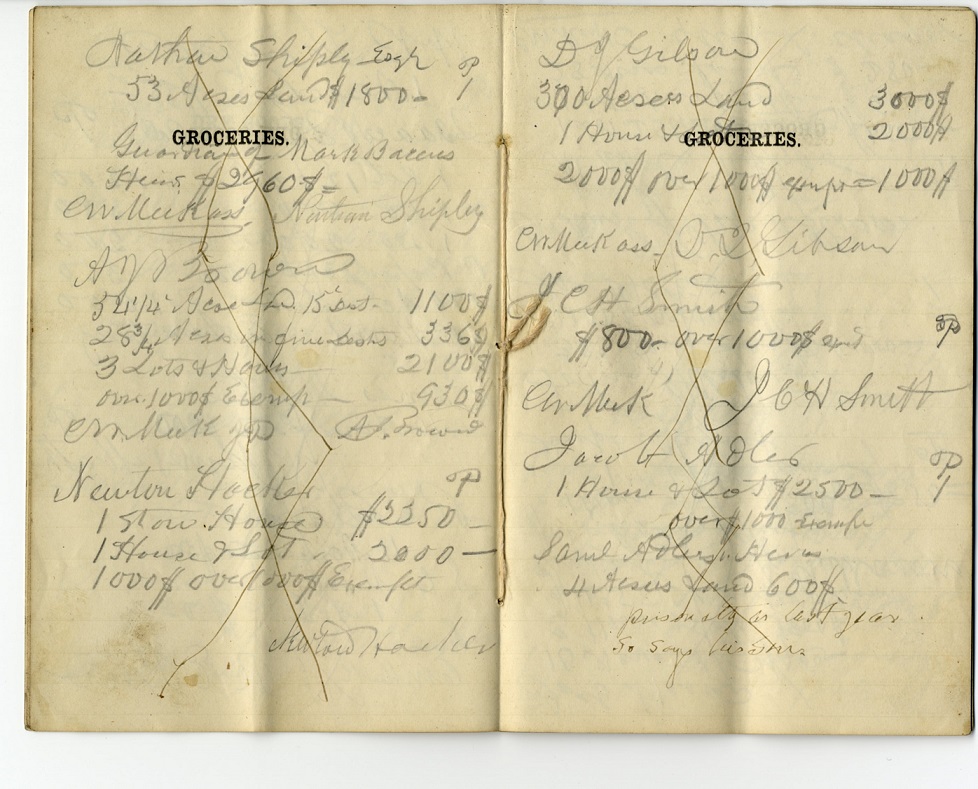 Nathan Shiply Esqr op
53 Acres Land $1800- 1
GROCERIES.
Guardian of Mark Bacens
Heirs $2960$=
CW Meek ass. Nathan Shipley
A J Brown
54 1/4 Acse Ld. 15 Dst. 1100$
28 3/4 Acres in dinu Dests 336$
3 Lots & House 2100$
over 1000$ Exemp- 930$
CW Meek A. Brown
Newton Hacker op
1 Store House $2250-
1 House & Lot. 2000-
1000$ over 1000$ Exempt
Newton Hacker
D J Gibson
300 Acsers Land 3000$
1 House & Lot 2000$
GROCERIES.
2000$ over 1000$ exmp = 1000$
CW Meek ass. D. J. Gibson
J C H Smith
$800- over 1000$ op
CW Meek J C H Smith
Jacob Adler op
1 House & Lot $2500- 1
over $1000 Exemp
Saml Adlers Heirs
4 Acsers Land 600$
personalty as last year.
So says his son.